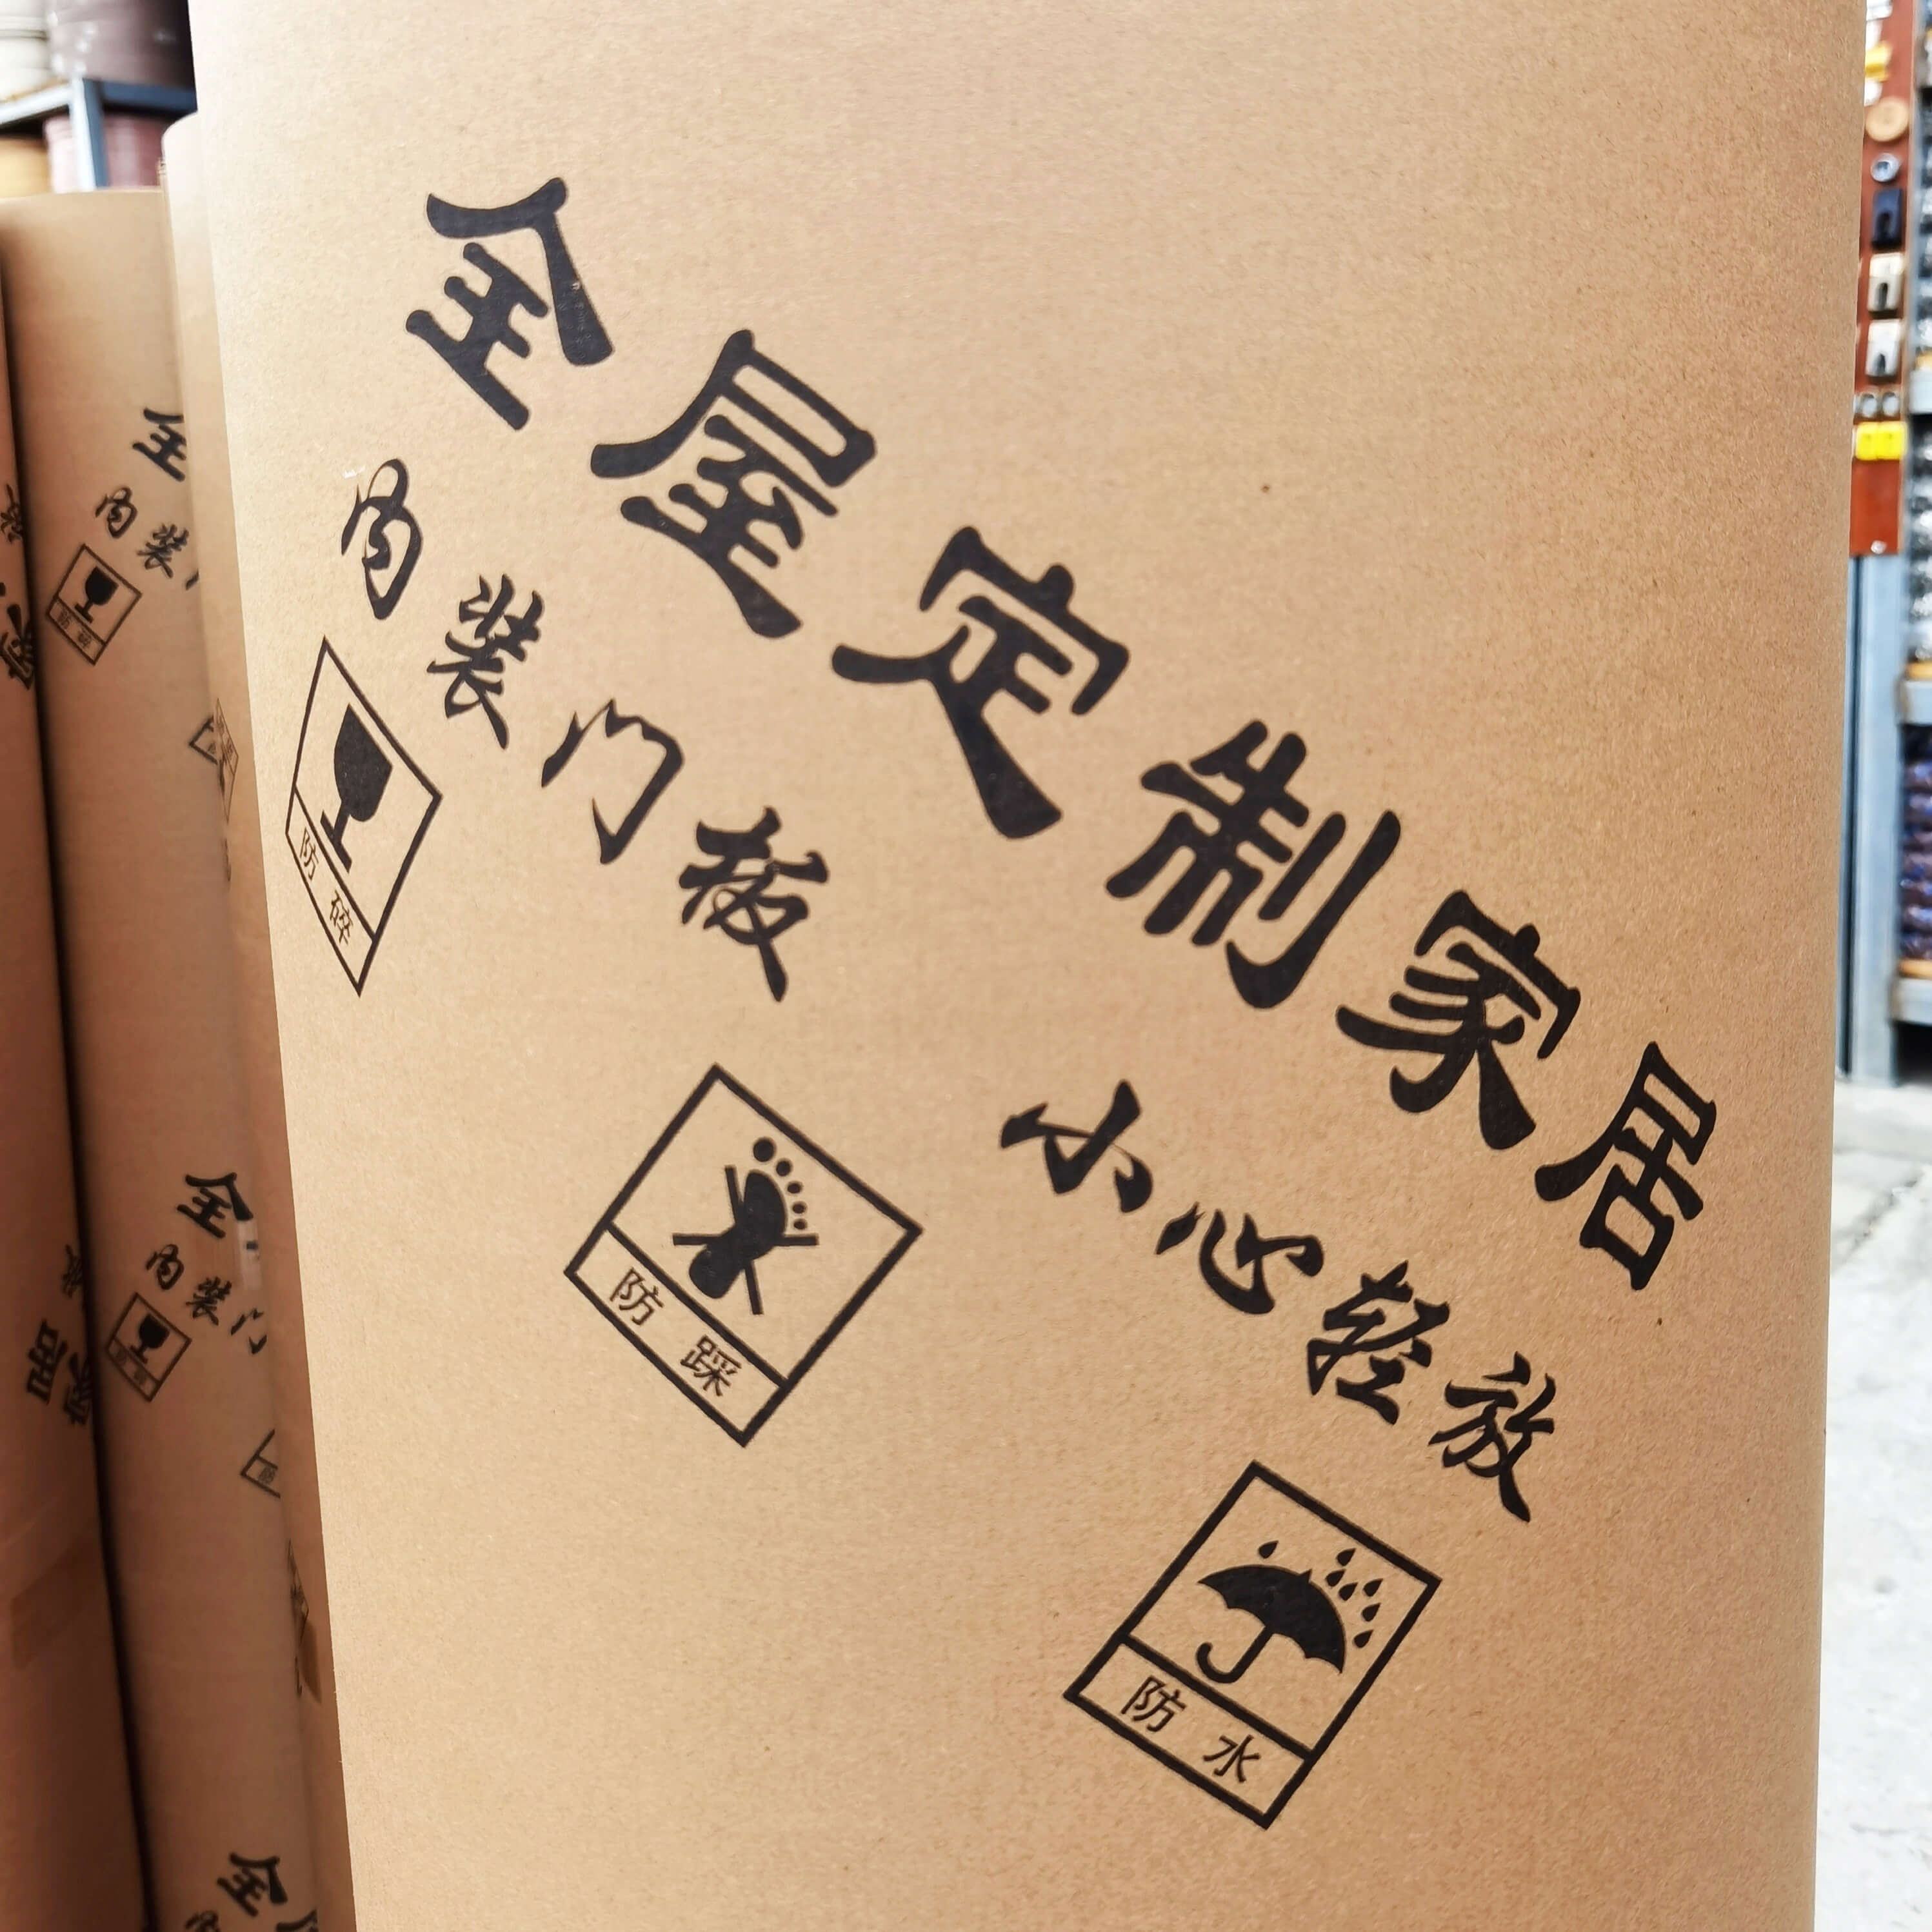 全屋定制家居
内装门板 小心轻放
防碎
防踩
防水
全
内装门
全
内装门
全屋